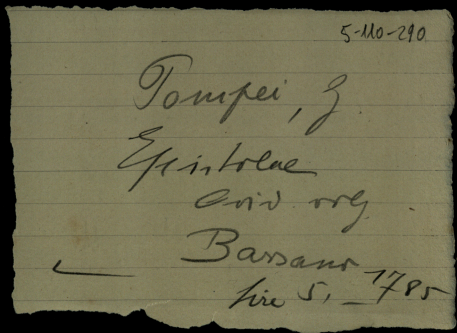 5-110-290
Pompei, G
Epistolae
Ovid volg.
Bassano
1785
Lire 5, –